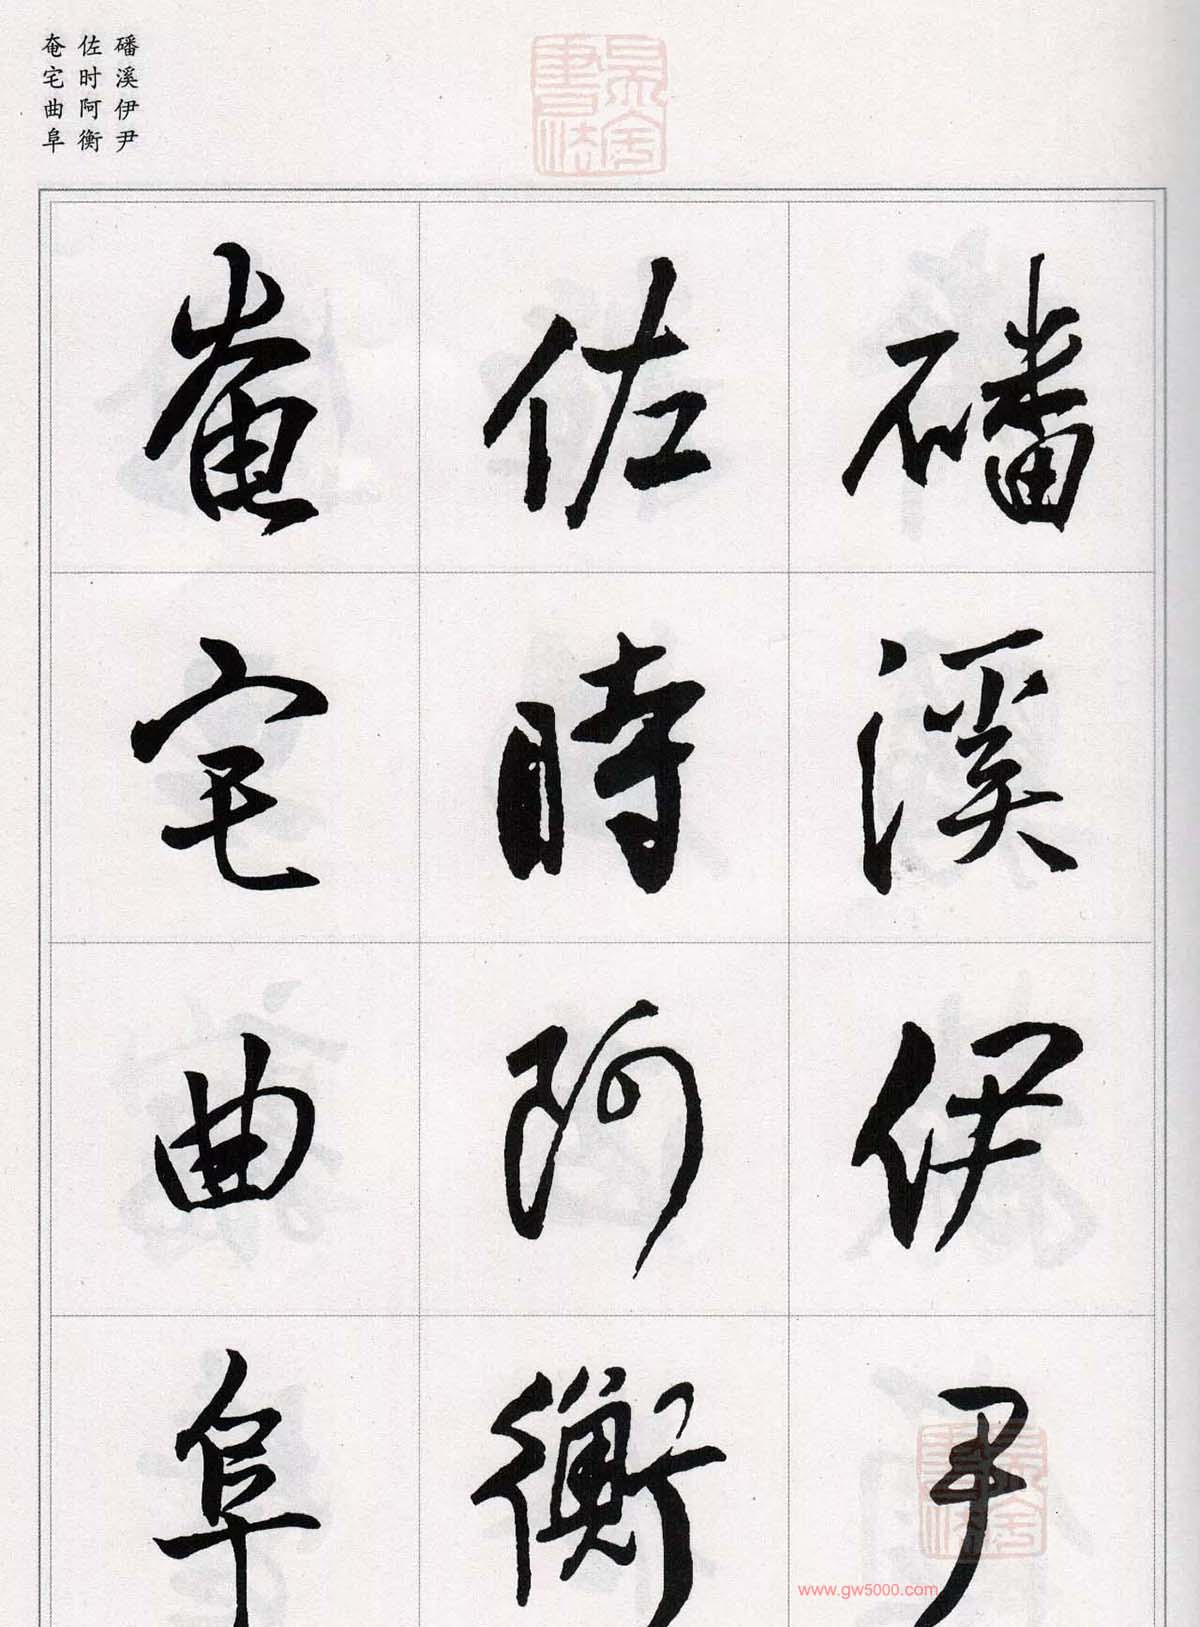 磻溪伊尹
佐时阿衡
奄宅曲阜
磻溪伊尹
佐時阿衡
奄宅曲阜
www.gw5000.com